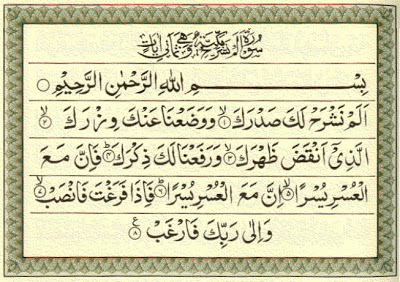 سُوْرَةُ اَلَمْ نَشْرَحْ مَكِّيَّةٌ وَّهِيَ ثَمَانِيْ اٰيَاتٍ
بِسْمِ اللهِ الرَّحْمٰنِ الرَّحِيْمِ
اَلَمْ نَشْرَحْ لَكَ صَدْرَكَ ۙ۱ وَوَضَعْنَا عَنْكَ وِزْرَكَ ۙ۲
الَّذِيْٓ اَنْقَضَ ظَهْرَكَ ۙ۳ وَرَفَعْنَا لَكَ ذِكْرَكَ ؕ۴ فَاِنَّ مَعَ
الْعُسْرِ يُسْرًا ۙ۵ اِنَّ مَعَ الْعُسْرِ يُسْرًا ؕ۶ فَاِذَا فَرَغْتَ فَانْصَبْ ۙ۷
وَاِلٰى رَبِّكَ فَارْغَبْ ۸ ع